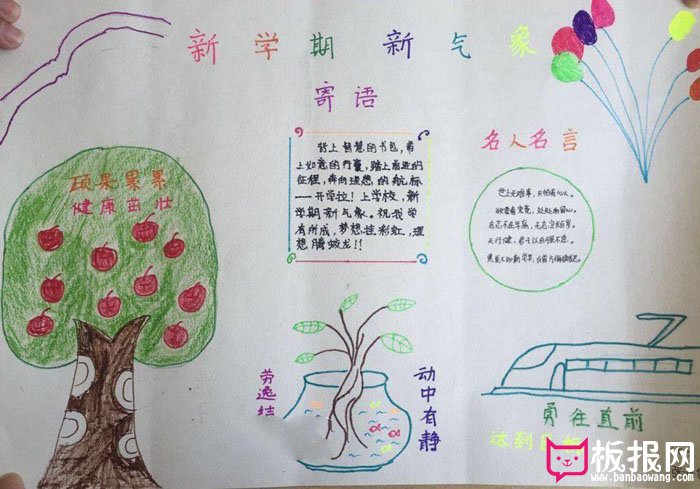 新学期 新气象
寄语
硕果累累
健康茁壮
背上智慧的书包,肩
上如意的行囊,踏上前进的
征程,奔向理想的航标
——开学拉!上学校,新
学期新气象。祝我学
有所成,梦想挂彩虹,理
想腾蛟龙!!
名人名言
世上无难事,只怕有心人。
有志不在年高,无志空长百岁。
天行健,君子以自强不息。
劳逸结
动中有静
勇往直前
达到
板报网
www.banbaowang.com